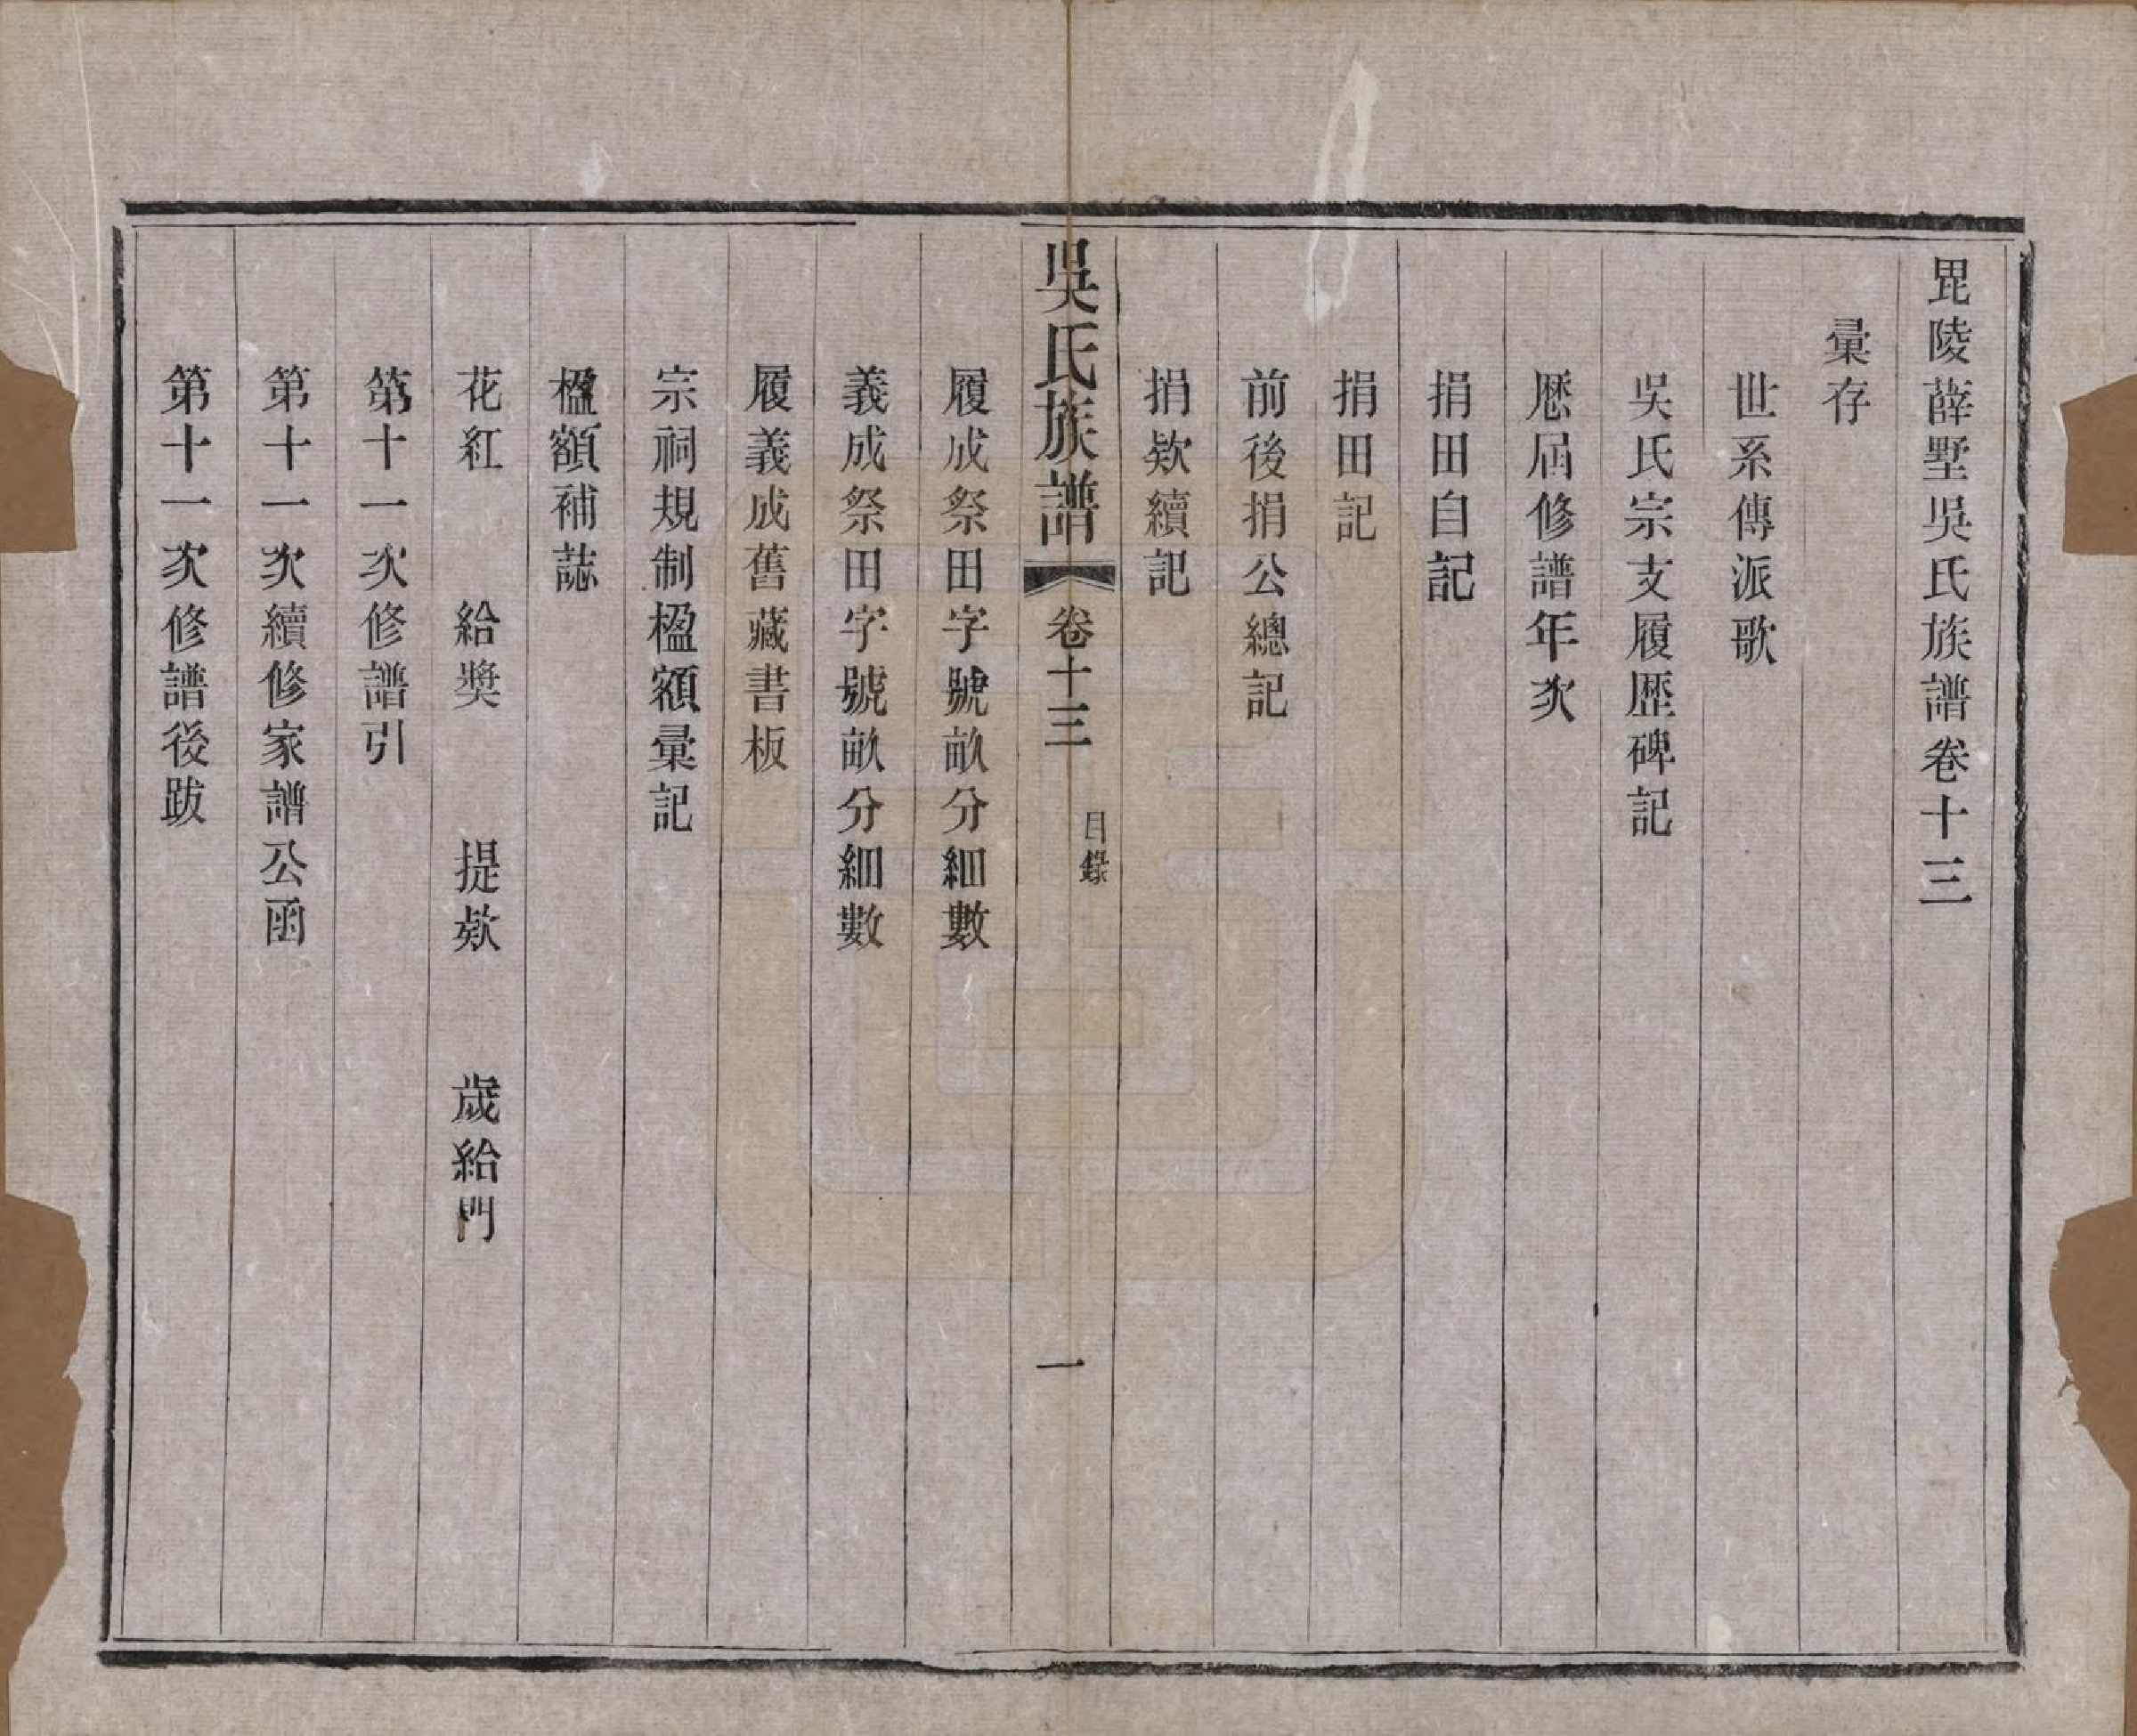 毘陵薛墅吳氏族譜卷十三
彙存
世系傳派歌
吳氏宗支履歷碑記
歷屆修譜年次
捐田自記
捐田記
前後捐公總記
捐欵續記
吳氏族譜 卷十三 目錄 一
履成祭田字號畝分細數
義成祭田字號畝分細數
履義成舊藏書板
宗祠規制楹額彙記
楹額補誌
花紅 給獎 提欵 歲給門
第十一次修譜引
第十一次續修家譜公函
第十一次修譜後跋